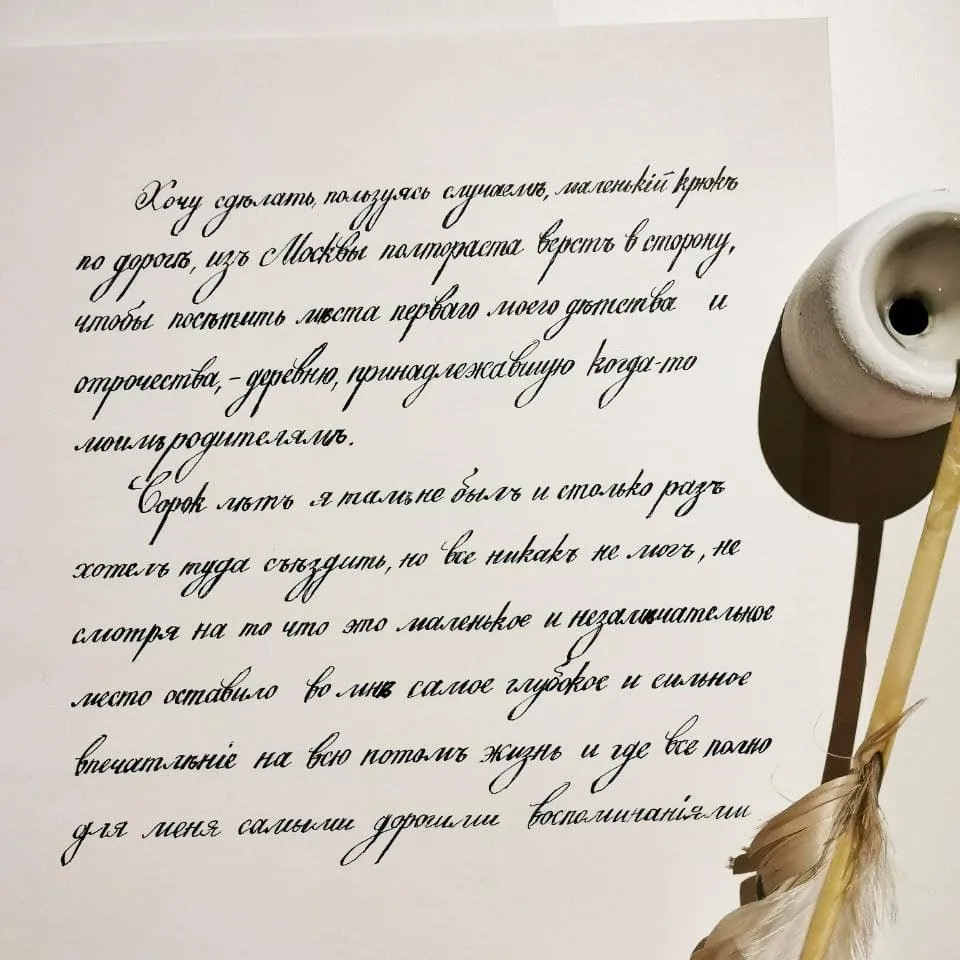 Хочу сдѣлать, пользуясь случаемъ, маленькій крюкъ
по дорогѣ, изъ Москвы полтораста верстъ в сторону,
чтобы посѣтить мѣста перваго моего дѣтства и
отрочества, – деревню, принадлежавшую когда-то
моимъ родителямъ.
Сорок лѣтъ я тамъ не былъ и столько разъ
хотелъ туда съѣздить, но все никакъ не могъ, не
смотря на то что это маленькое и незамѣчательное
место оставило во мнѣ самое глубокое и сильное
впечатлѣніе на всю потомъ жизнь и где все полно
для меня самыми дорогими воспоминаніями